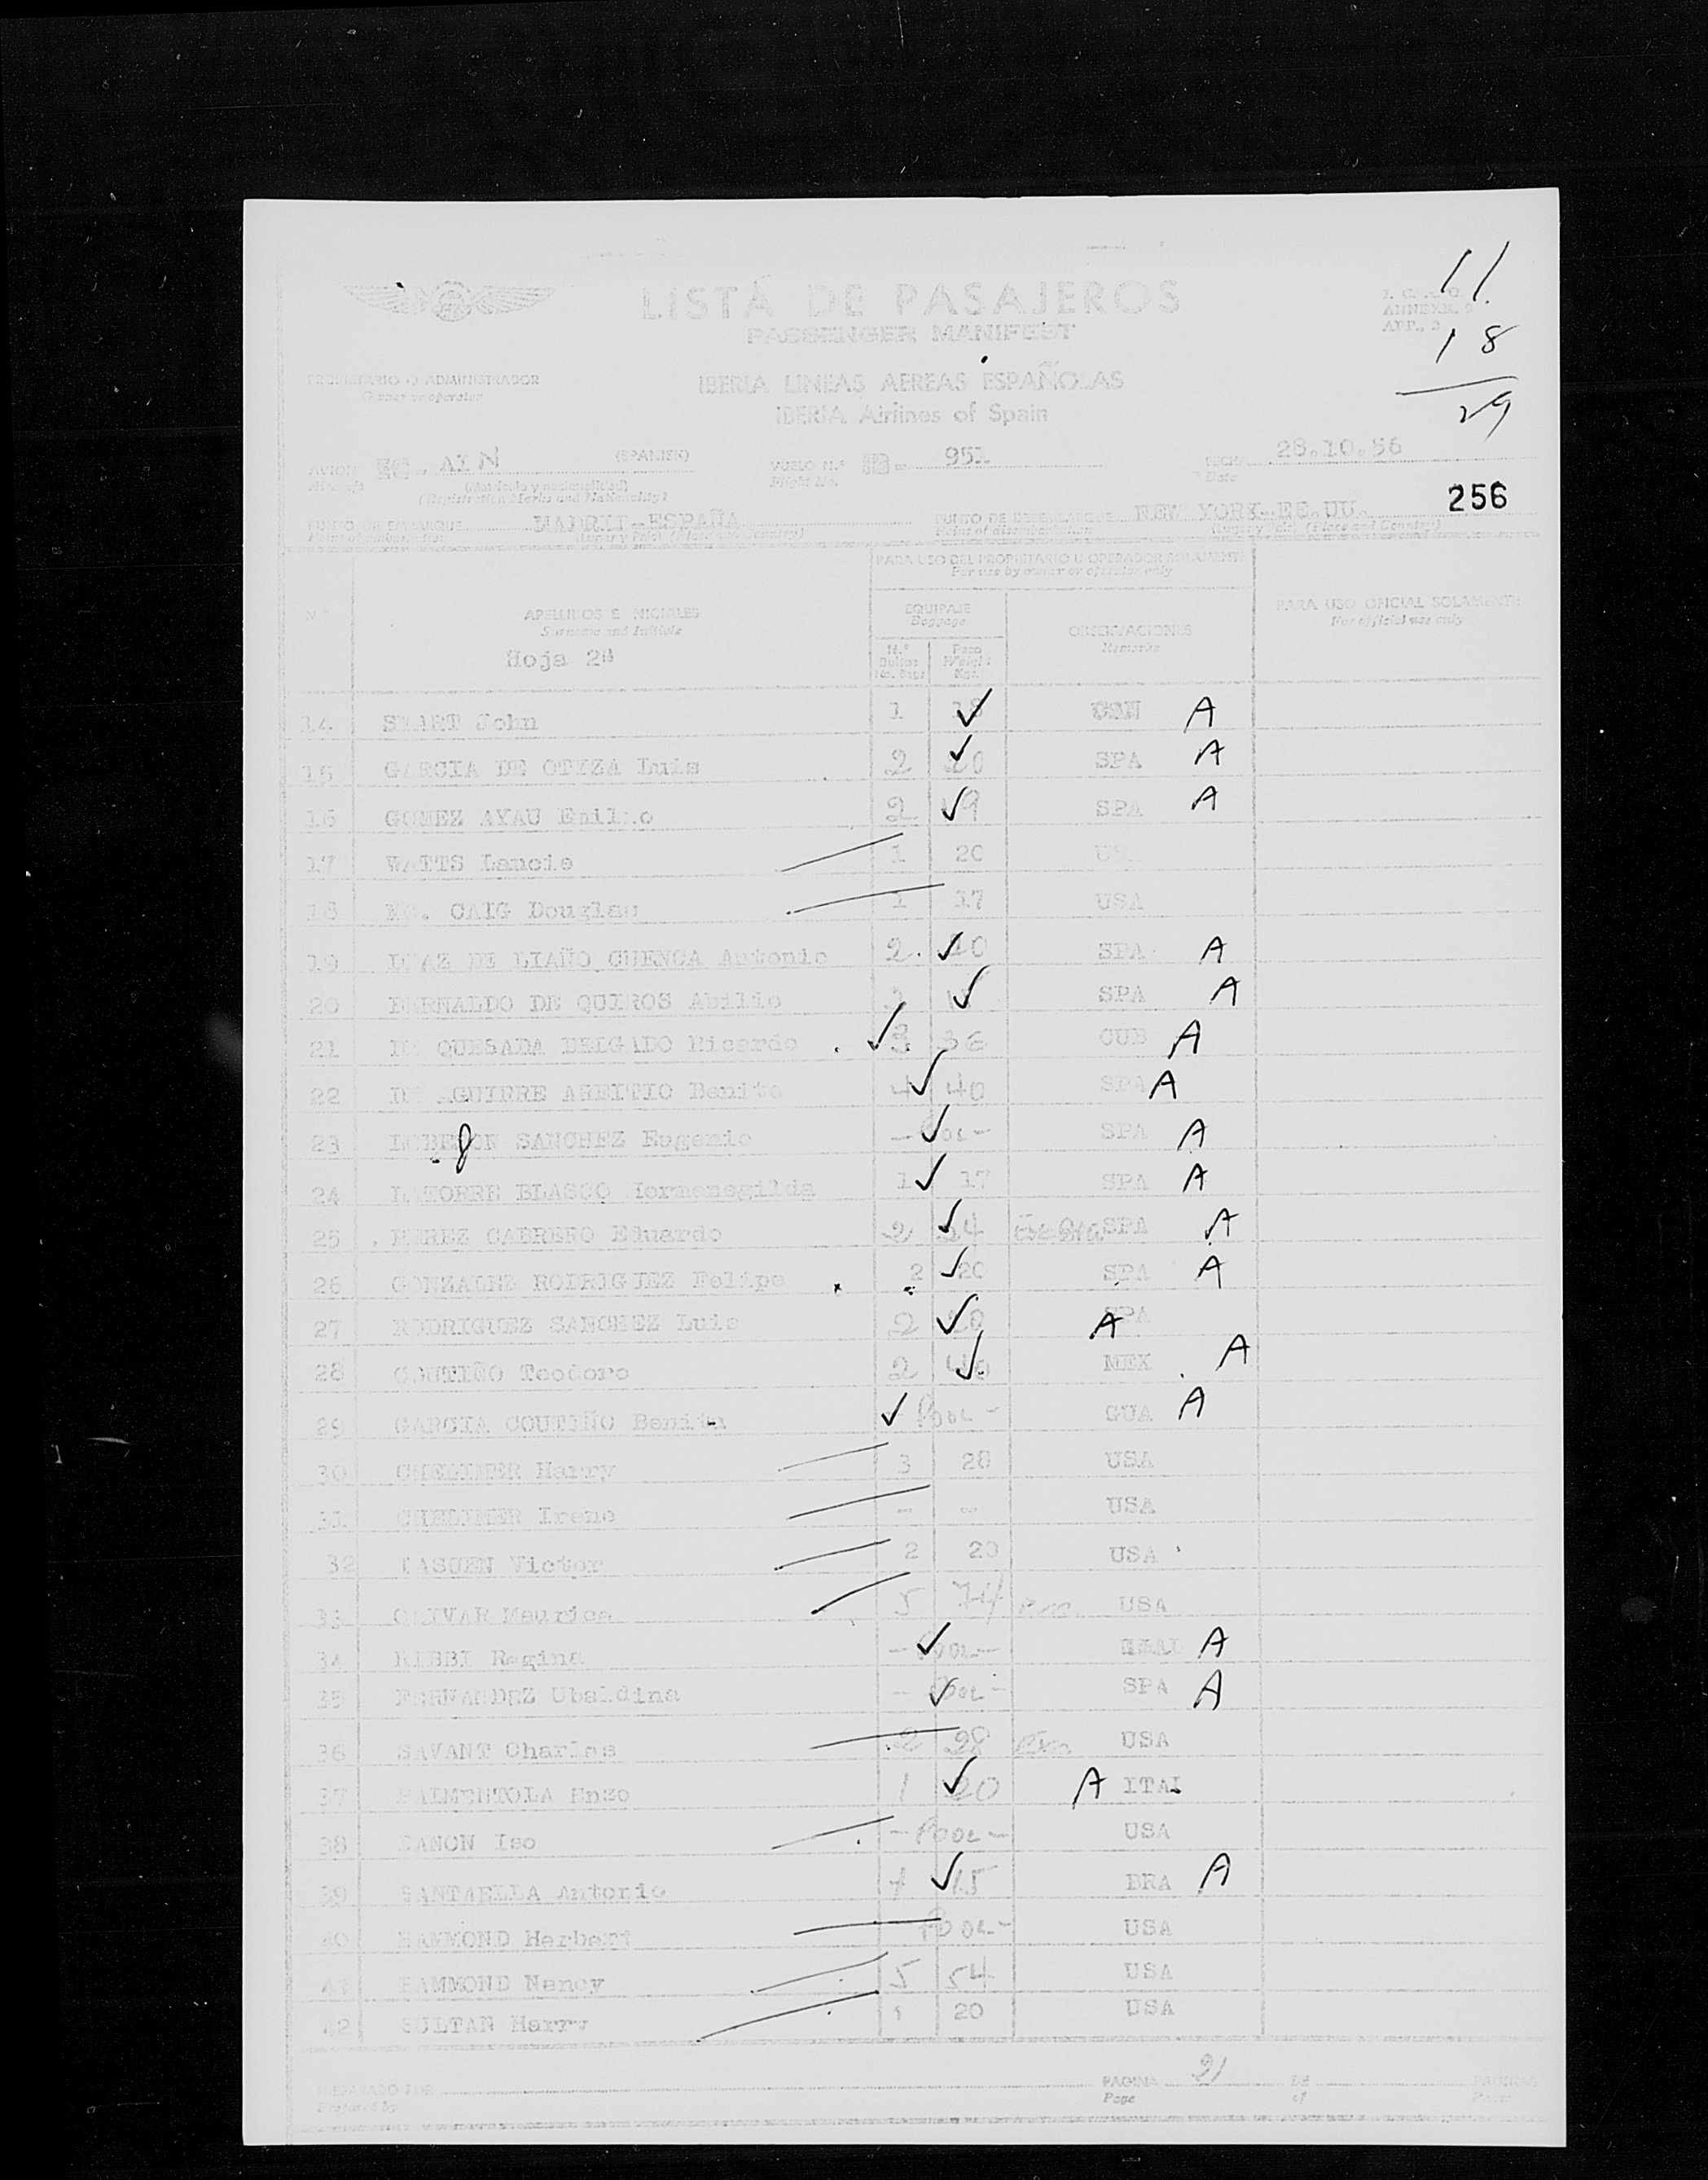 LISTA DE PASAJEROS
PASSENGER MANIFEST
11
ANNEXE. 9
APP., 2
18
29
PROPIETARIO O ADMINISTRADOR
Owner or operator
IBERIA LINEAS AEREAS ESPAÑOLAS
IBERIA Airlines of Spain
AVION EC- AIN (SPANISH)
Aircraft (Matrícula y nacionalidad)
(Registration Marks and Nationality)
VUELO N.º IB- 951
Flight No.
FECHA 28.10.56
Date
256
PUNTO DE EMBARQUE MADRID-ESPAÑA
Point of embarkation (Lugar y País) (Place and Country)
PUNTO DE DESEMBARQUE NEW YORK-EE.UU.
Point of disembarkation (Lugar y País) (Place and Country)
PARA USO DEL PROPIETARIO U OPERADOR SOLAMENTE
For use by owner or operator only
N.º
APELLIDOS E INICIALES
Surname and Initials
Hoja 2ª
EQUIPAJE
Baggage
N.º Bultos
Peso
Weight
Kgs.
OBSERVACIONES
Remarks
PARA USO OFICIAL SOLAMENTE
For official use only
14 John 1 18 A
15 GARCIA DE Luis 2 20 SPA A
16 GOMEZ AYAU Emilio 2 19 SPA A
17 WATTS 1 20
18 MC. CAIG Douglas 1 17 USA
19 DIAZ DE LIAÑO CUENCA Antonio 2 20 SPA A
20 BERNALDO DE QUIROS Abilio SPA A
21 DE QUESADA DELGADO Ricardo 3 36 CUB A
22 DE AGUIRRE Benito 4 40 SPA A
23 SANCHEZ Eugenio - Pool - SPA A
24 LATORRE BLASCO Hermenegilda 1 17 SPA A
25 PEREZ CABRERO Eduardo 2 24 SPA A
26 GONZALEZ RODRIGUEZ Felipe 2 20 SPA A
27 RODRIGUEZ SANCHEZ Luis 2 20 A SPA
28 COUTIÑO Teodoro 2 MEX A
29 GARCIA COUTIÑO Benita Pool - GUA A
30 Harry 3 28 USA
31 Irene - - USA
32 Victor 2 20 USA
33 Maurice 5 74 USA
34 Regina - Pool - A
35 FERNANDEZ Ubaldina - Pool - SPA A
36 SAVANT Charles 2 USA
37 Enzo 1 20 A ITAL
38 - Pool - USA
39 SANTAELLA Antonio 1 15 BRA A
40 HAMMOND Herbert Pool - USA
41 HAMMOND Nancy 5 54 USA
42 SULTAN Harry 1 20 USA
PREPARADO POR
Prepared by
PAGINA 21 DE PAGINAS
Page of Pages